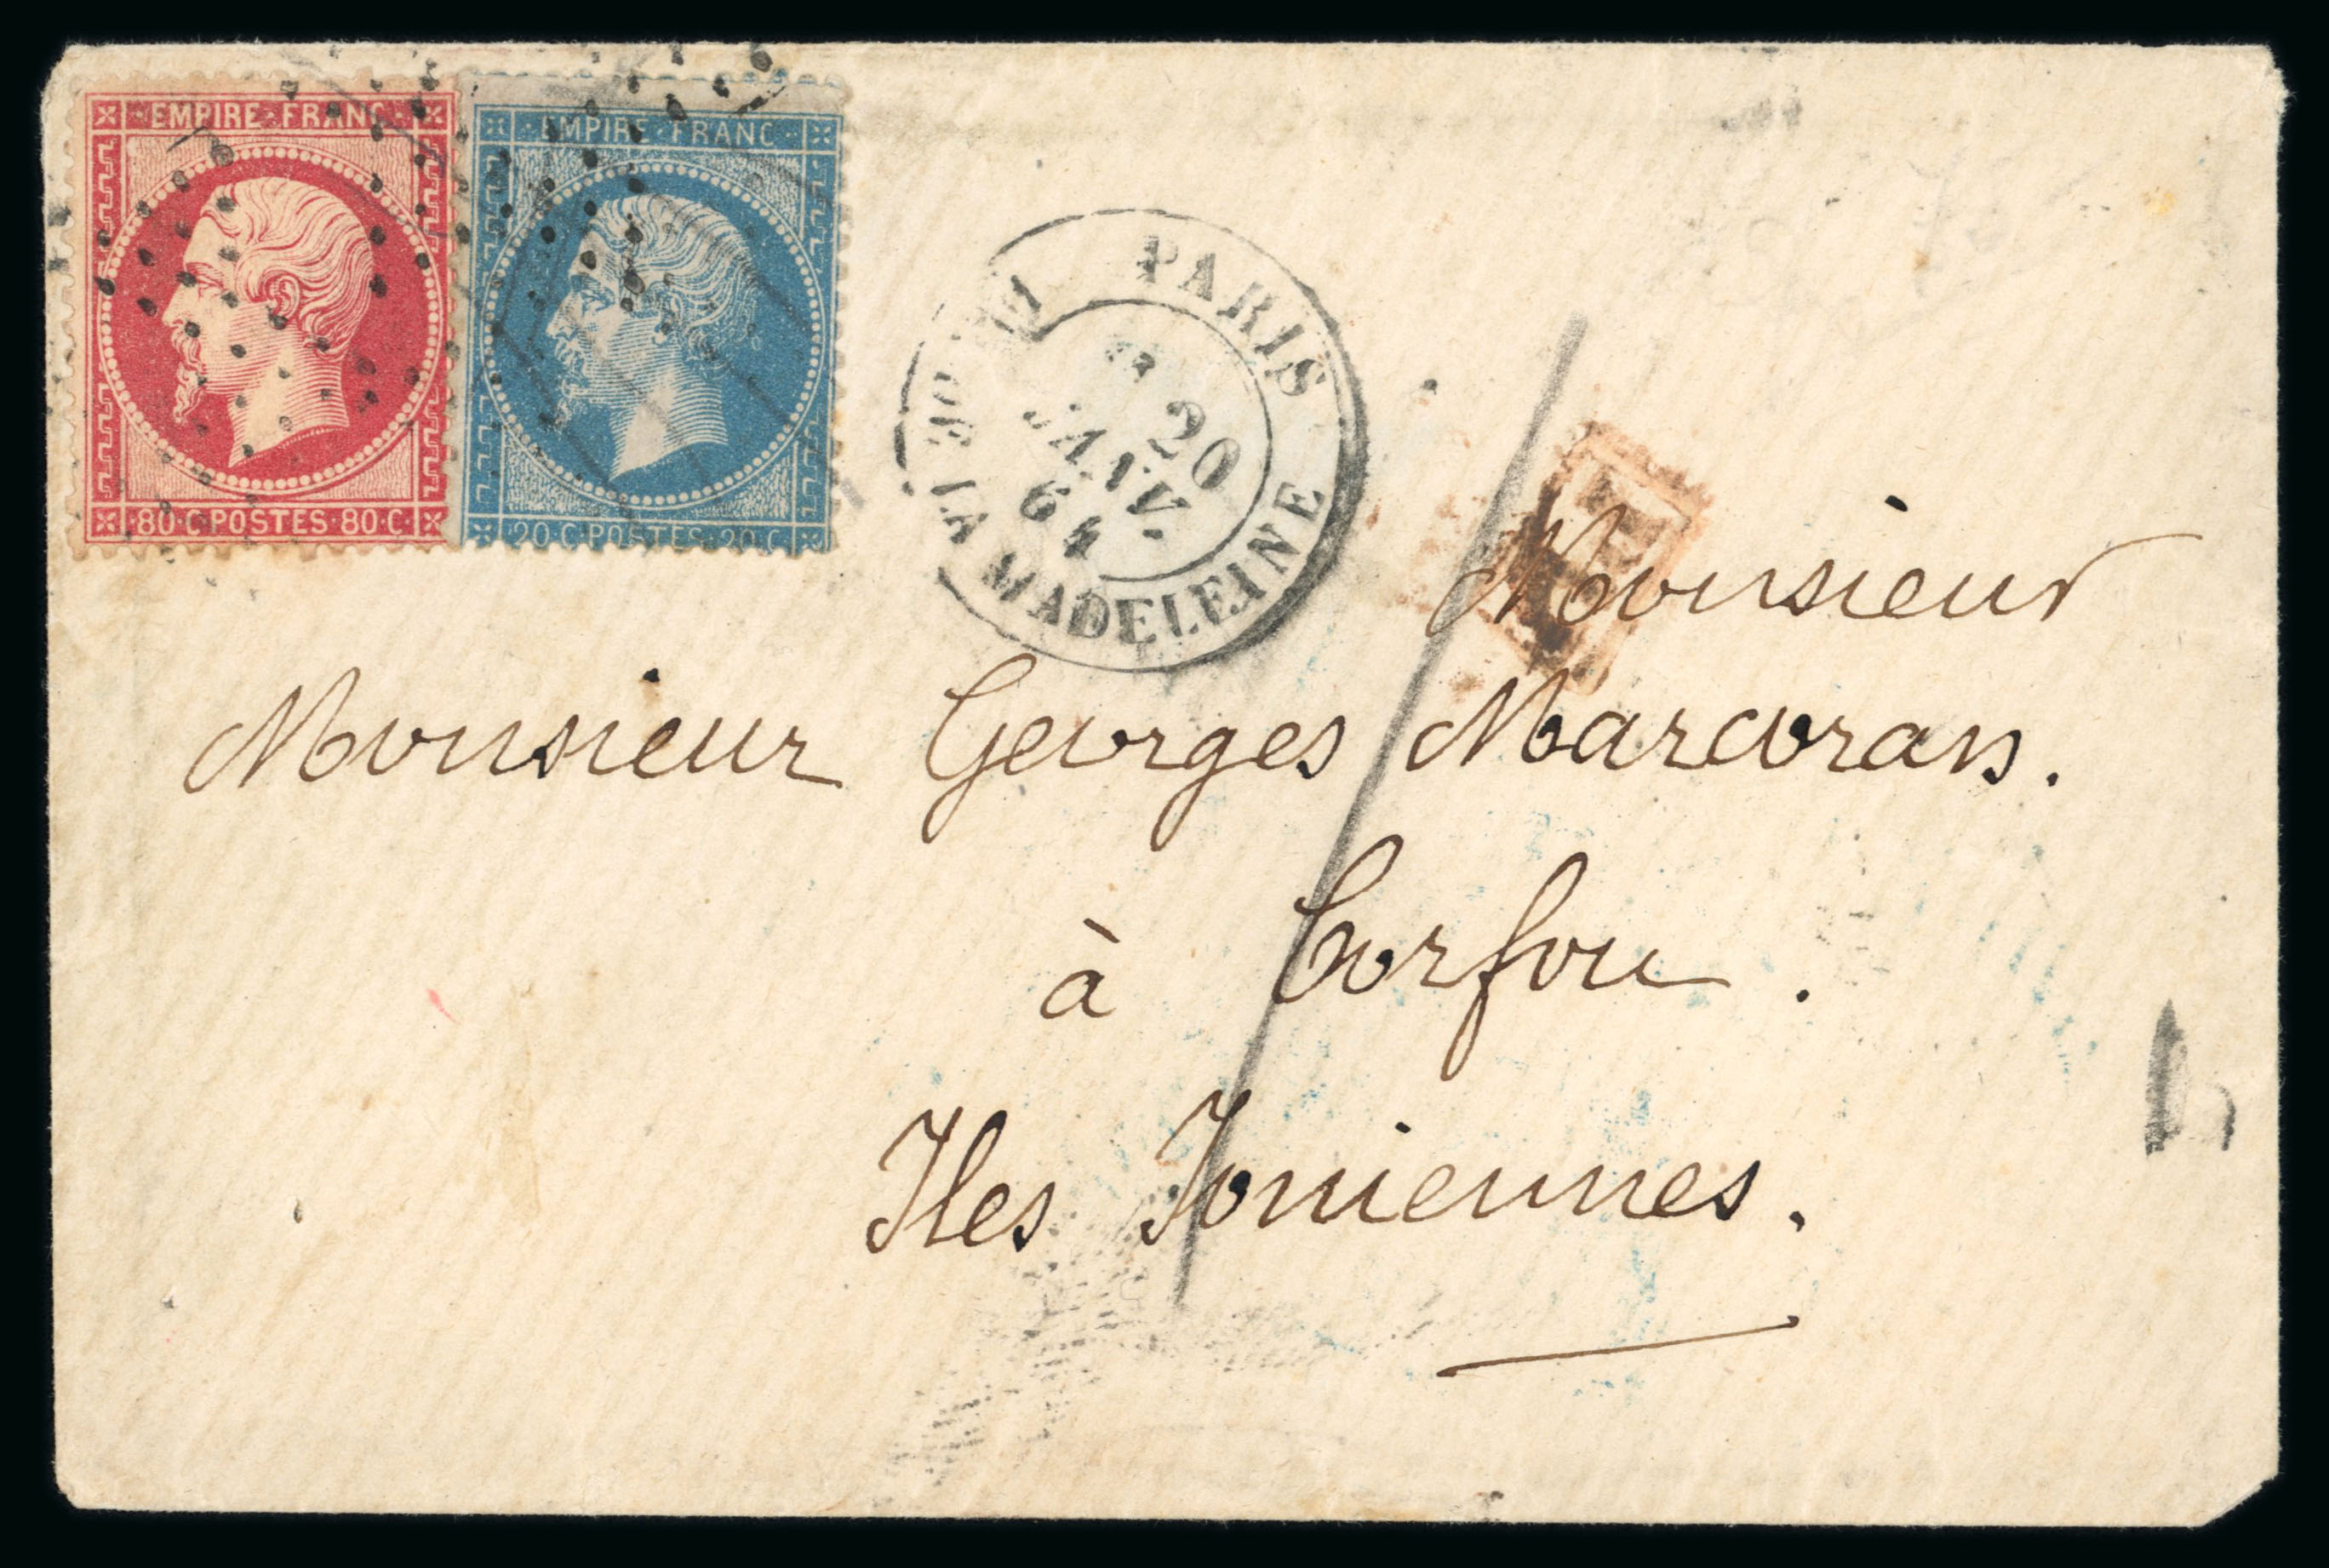 EMPIRE FRANC
80 C POSTES 80 C
EMPIRE FRANC
20 C POSTES 20 C
PARIS
LA MADELEINE
20
JANV.
64
Monsieur
Monsieur Georges Marcoran.
à Corfou.
Iles Ioniennes.